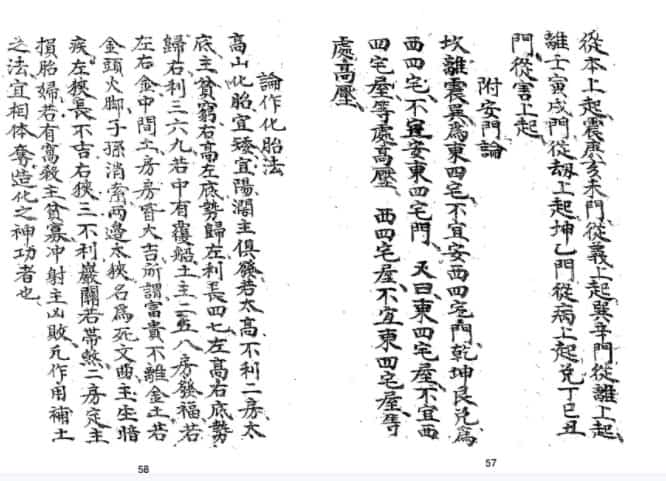 從本上起震庚亥未門從義上起巽辛門從離上起
離壬寅戌門從刼上起坤乙門從病上起兌丁巳丑
門從害上起
附安門論
坎離震巽為東四宅不宜安西四宅門乾坤艮兌為
西四宅不宜安東四宅門又曰東四宅屋不宜西
四宅屋等處高壓西四宅屋不宜東四宅屋等
處高壓
57
論作化胎法
高山化胎宜臻宜陽濶主俱發若太高不利二房太
底主貧窮右高左底勢歸左利長四七左高右底勢
歸右利三六九若中有覆船土主二五八房發福若
左右金中間土房房皆大吉所謂富貴不離金土若
金頭火脚子孫消索兩邊太狹名為死文曲主生暗
疾左狹長不吉右狹三不利巖關若帶煞二房定主
損胎婦若有窩殺主貧寡冲射主凶敗凢作用補土
之法宜相体奪造化之神功者也
58